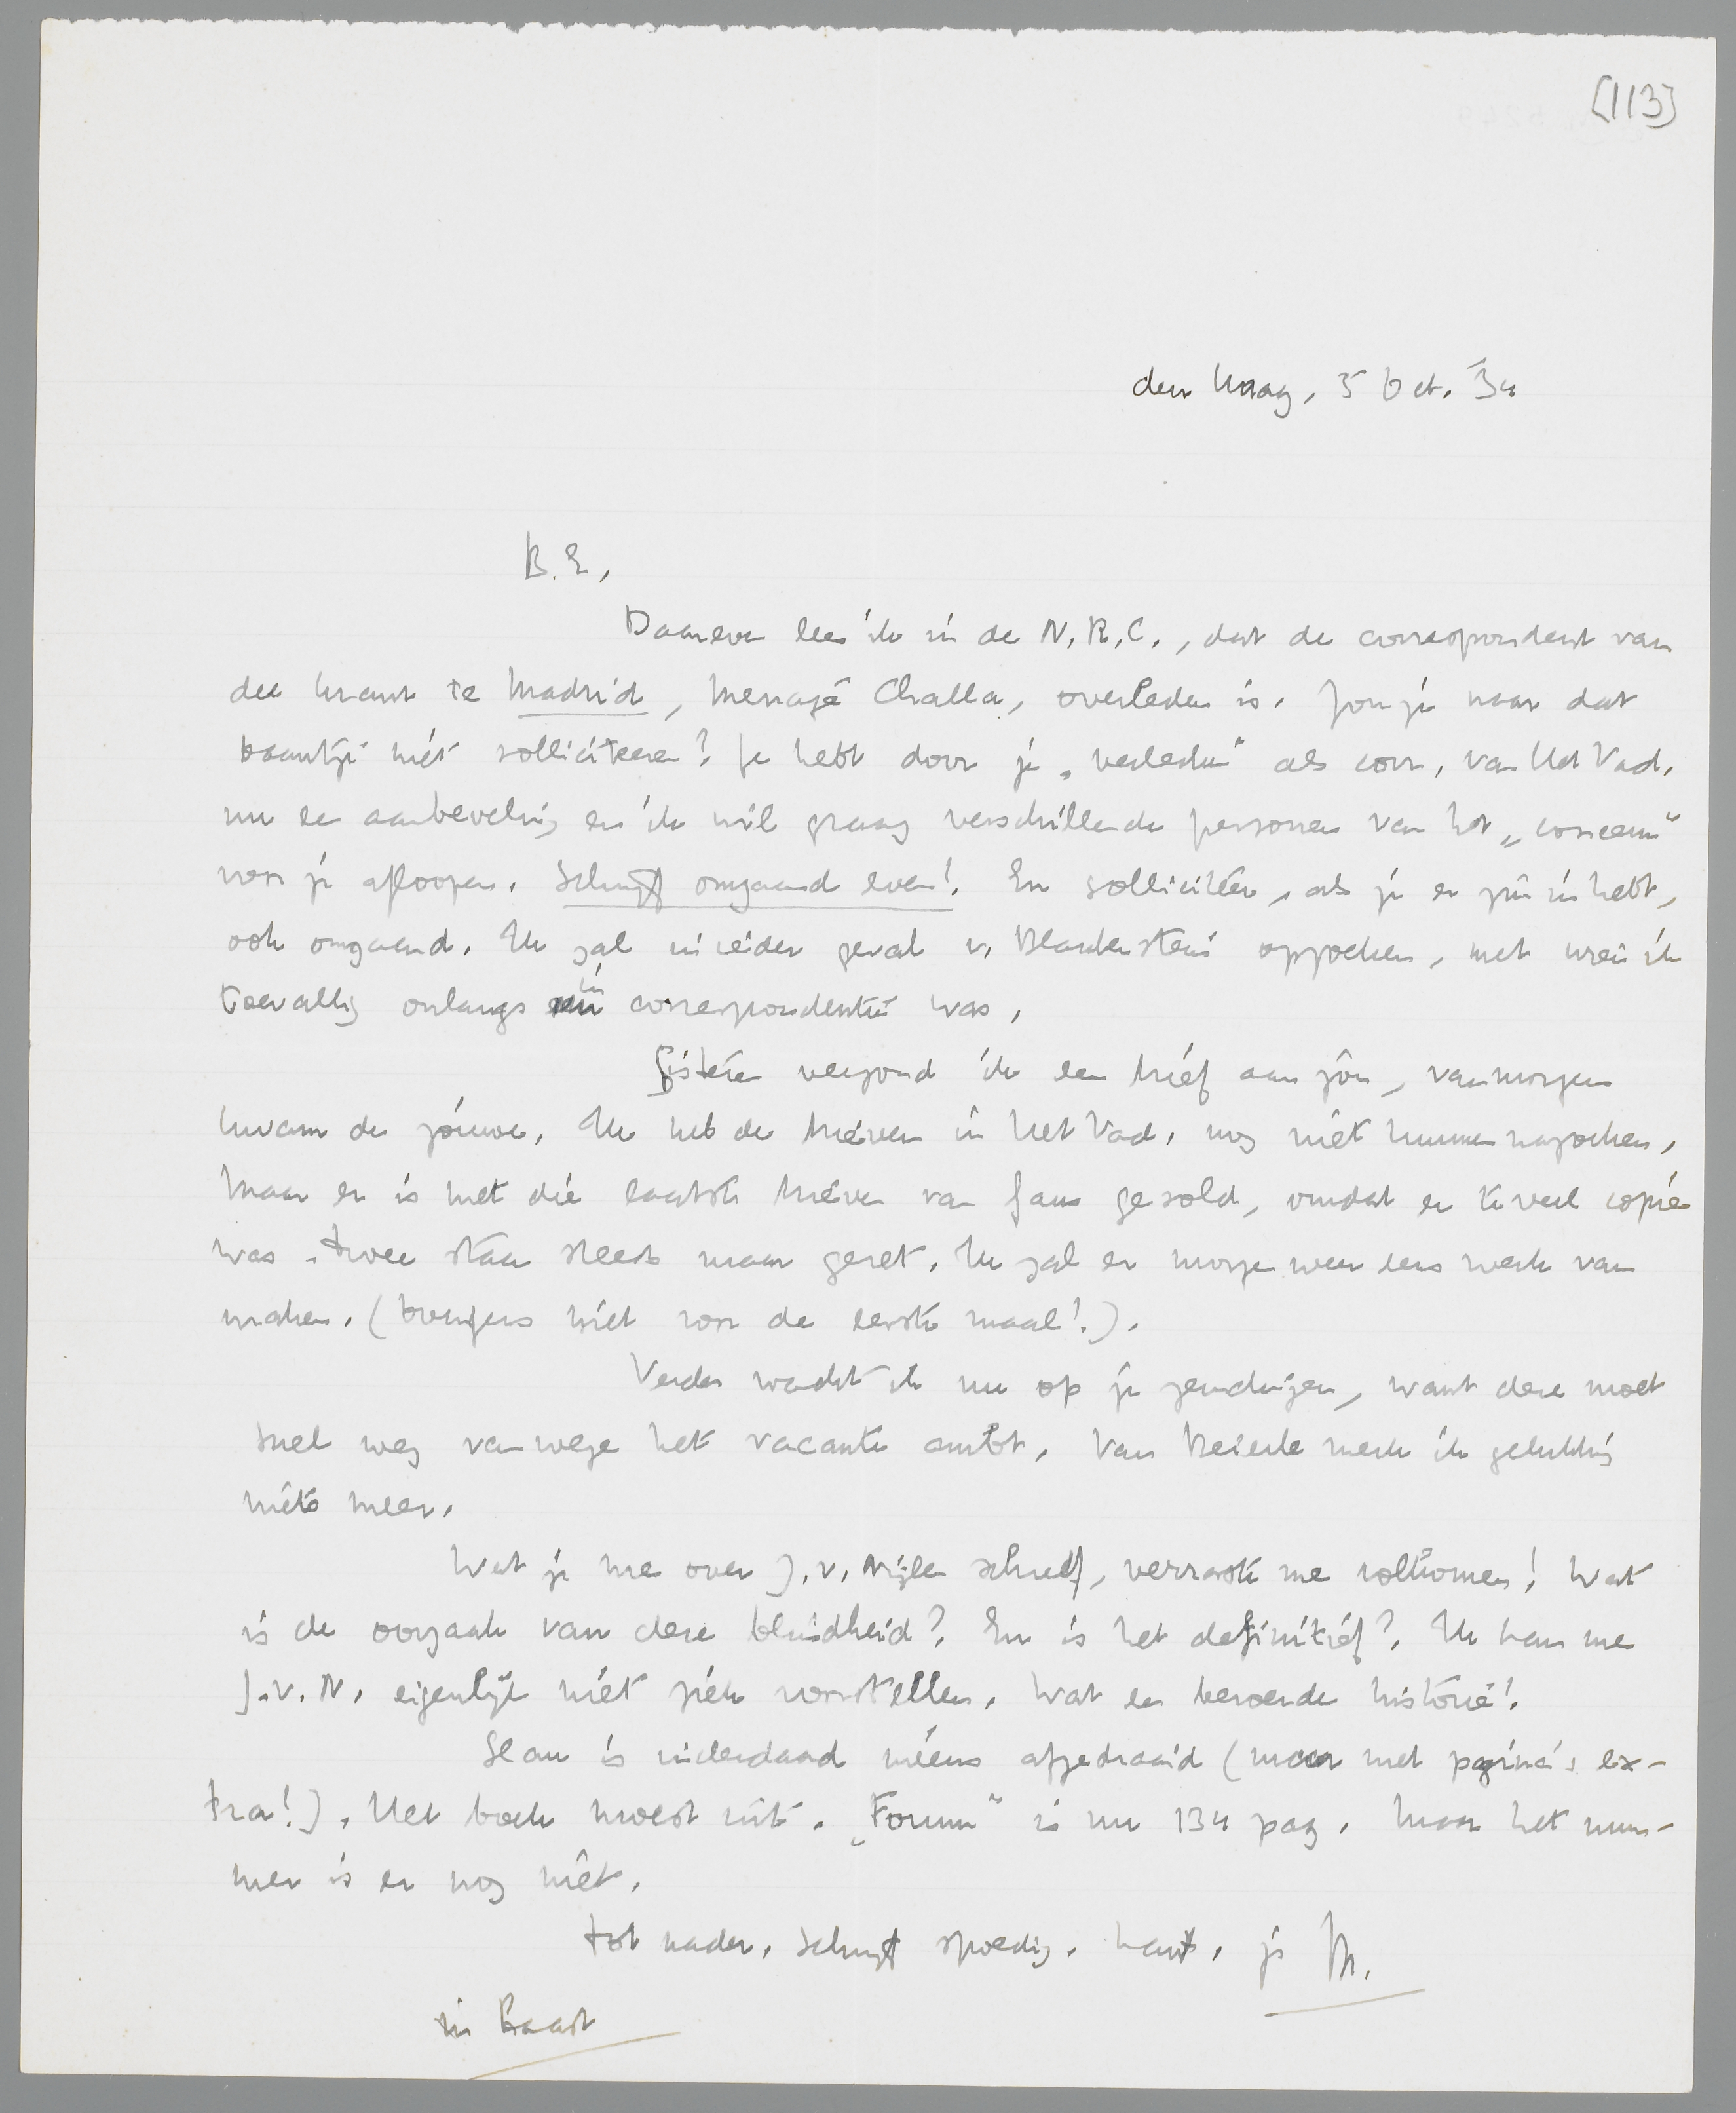 [113]
den Haag, 5 Oct. '34
B.E.,
Daareven lees ik in de N.R.C., dat de correspondent van
die krant te Madrid, Challa, overleden is. Zou je naar dat
baantje niet solliciteeren? Je hebt door je „verleden" als corr. van Het Vad.
nu een aanbeveling en ik wil graag verschillende personen van het „concern"
voor je afloopen. Schrijf omgaand even! En solliciteer, als je er zin in hebt,
ook omgaand. Ik zal in ieder geval v. Blankenstein opzoeken, met wien ik
toevallig onlangs in correspondentie was.
Gisteren verzond ik een brief aan jou, vanmorgen
kwam de jouwe. Ik heb de brieven in Het Vad. nog niet kunnen nazoeken,
maar er is met die laatste brieven van Gans gesold, omdat er te veel copie
was. Twee staan steeds maar gezet. Ik zal er morgen weer eens werk van
maken. (Overigens niet voor de eerste maal!).
Verder wacht ik nu op je zendingen, want deze moet
snel weg vanwege het vacante ambt. Van Beierle merk ik gelukkig
niets meer.
Wat je me over J.v. Nijlen schreef, verraste me volkomen! Wat
is de oorzaak van deze blindheid? En is het definitief? Ik kan me
J.v.N. eigenlijk niet ziek voorstellen. Wat een beroerde historie!
Slau is inderdaad ineens afgedraaid (maar met pagina's ex-
tra!). Het boek moest uit. „Forum" is nu 134 pag. maar het num-
mer is er nog niet.
Tot nader, schrijf spoedig. hart. je M.
in haast